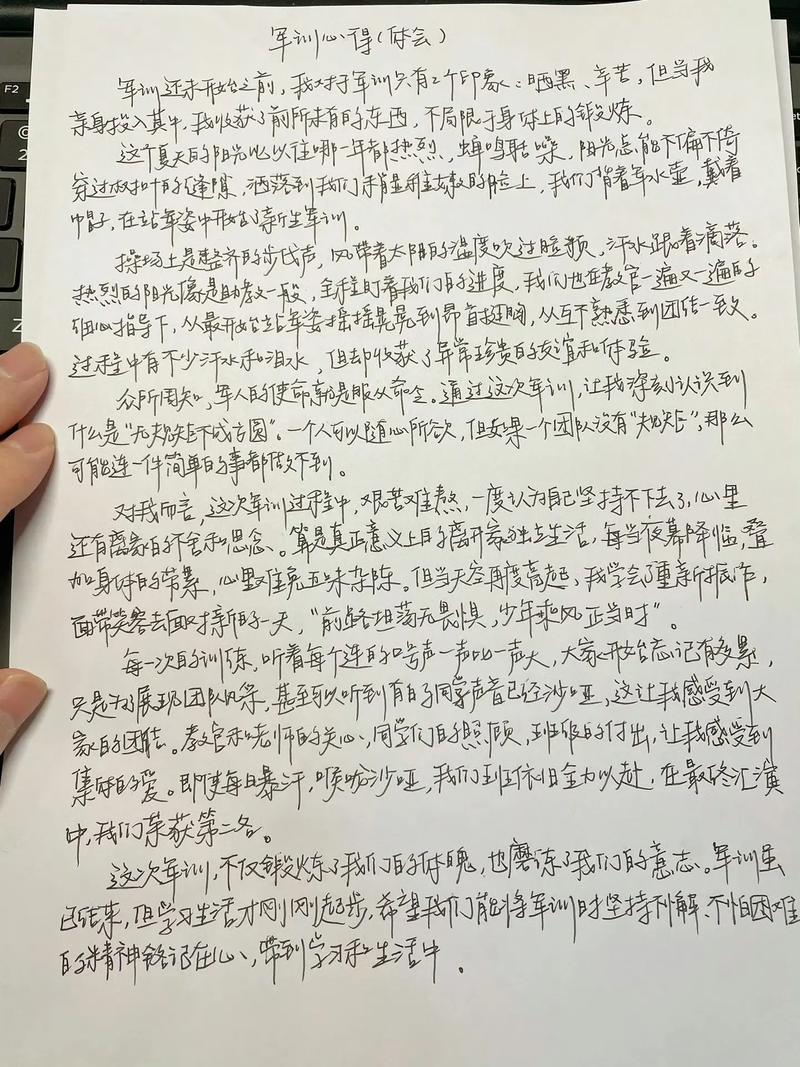 军训心得(体会)
军训还未开始之前,我对于军训只有2个印象:晒黑、辛苦,但当我
亲身投入其中,我收获了前所未有的东西,不局限于身体上的锻炼。
这个夏天的阳光比以往哪一年都热烈,蝉鸣聒噪,阳光总能不偏不倚
穿过树叶的缝隙,洒落到我们稍显稚嫩的脸上,我们背着军水壶,戴着
巾帽子,在站军姿中开始了新生军训。
操场上是整齐的步伐声,风带着太阳的温度吹过脸颊,汗水跟着滴落。
热烈的阳光像是助教一般,全程盯着我们的进度,我们也在教官一遍又一遍的
细心指导下,从最开始站军姿摇摇晃晃到昂首挺胸,从互不熟悉到团结一致。
过程中有不少汗水和泪水,但却收获了异常珍贵的友谊和体验。
众所周知,军人的使命就是服从命令。通过这次军训,让我深刻认识到
什么是“无规矩不成方圆”。一个人可以随心所欲,但如果一个团队没有“规矩”,那么
可能连一件简单的事都做不到。
对我而言,这次军训过程中,艰苦难熬,一度认为自己坚持不下去了,心里
还有离家的不舍和思念。算是真正意义上的离开家独立生活,每当夜幕降临,叠
加身体的劳累,心里难免五味杂陈。但当天空再度亮起,我学会了重新振作,
面带笑容去面对新的一天,“前路坦荡无畏惧,少年乘风正当时”。
每一次的训练,听着每个连的口号声一声比一声大,大家开始忘记有多累,
只是为了展现团队风采,甚至可以听到有的同学声音已经沙哑,这让我感受到大
家的团结。教官和老师的关心,同学们的照顾,班级的付出,让我感受到
集体的爱。即使每日暴汗,喉咙沙哑,我们班依旧全力以赴,在最终汇演
中,我们荣获第二名。
这次军训,不仅锻炼了我们的体魄,也磨练了我们的意志。军训虽
已结束,但学习生活才刚刚起步,希望我们能将军训时坚持不懈、不怕困难
的精神铭记在心,带到学习和生活中。